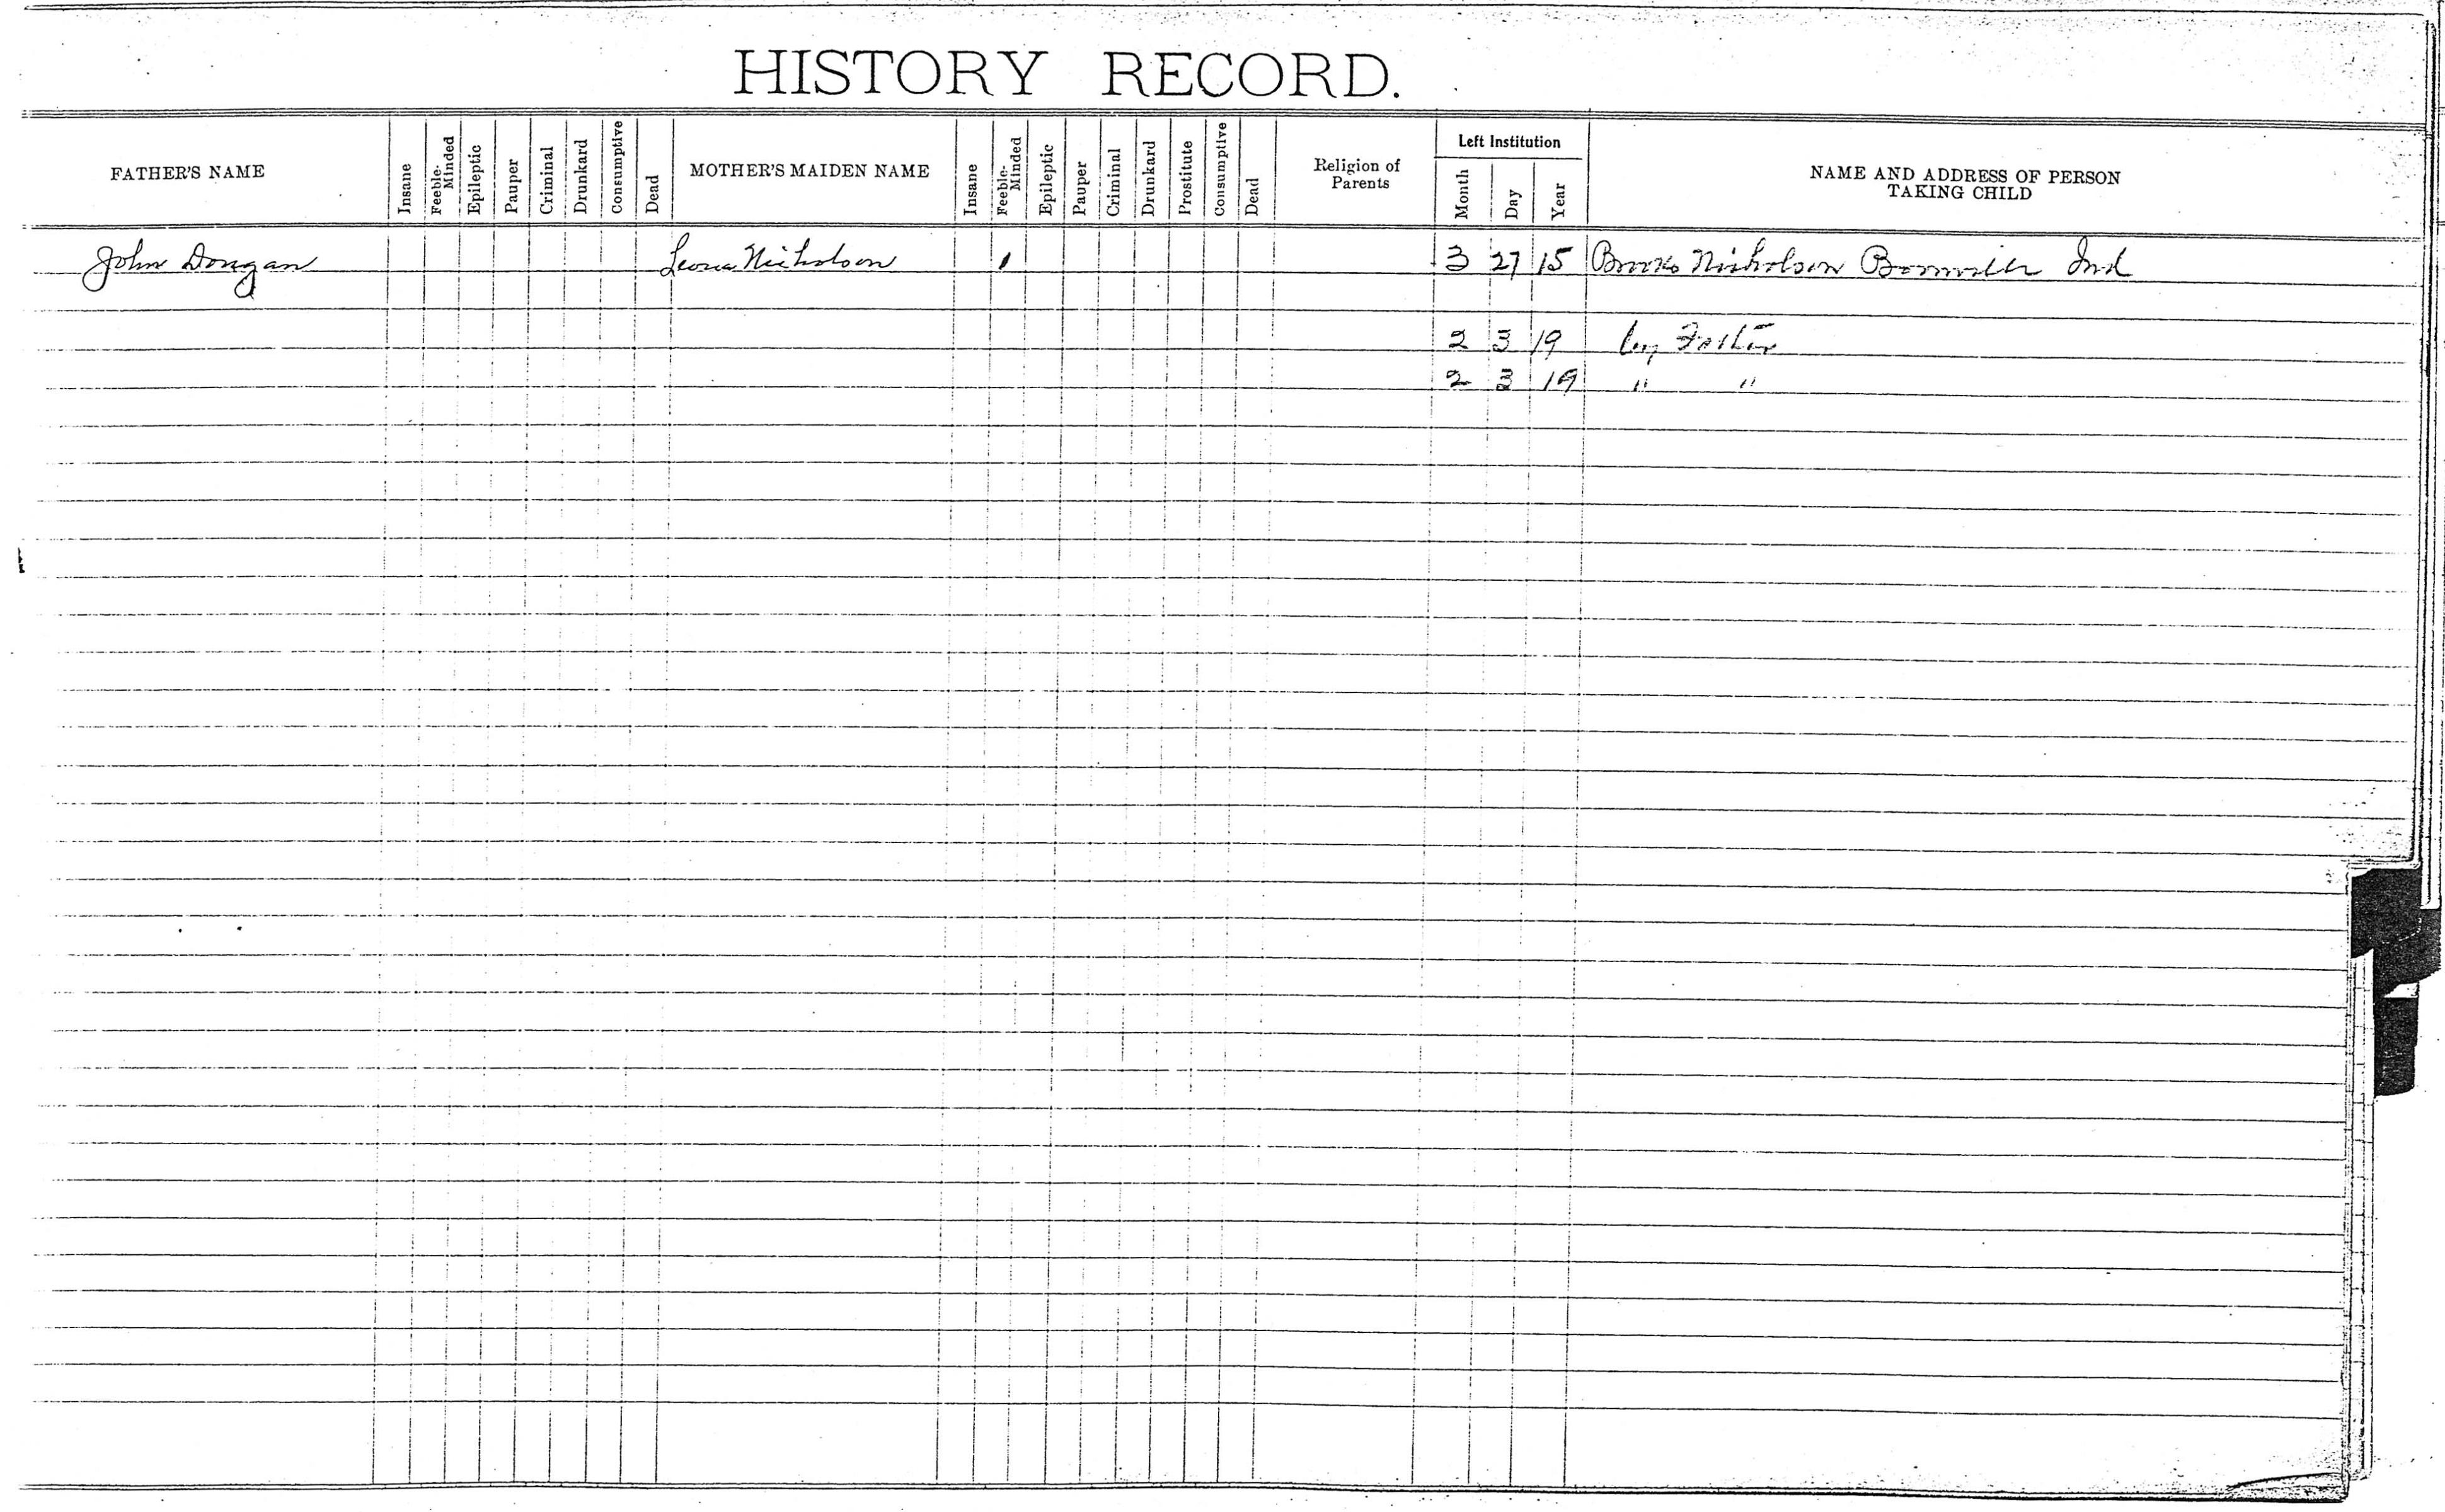 HISTORY RECORD.
FATHER'S NAME
Insane
Feeble-Minded
Epileptic
Pauper
Criminal
Drunkard
Consumptive
Dead
MOTHER'S MAIDEN NAME
Insane
Feeble-Minded
Epileptic
Pauper
Criminal
Drunkard
Prostitute
Consumptive
Dead
Religion of
Parents
Left Institution
Month
Day
Year
NAME AND ADDRESS OF PERSON
TAKING CHILD
John Dongan Leona Nicholson 1 3 27 15 Brooks Nicholson Ind
2 3 19 by Father
2 3 19 " "